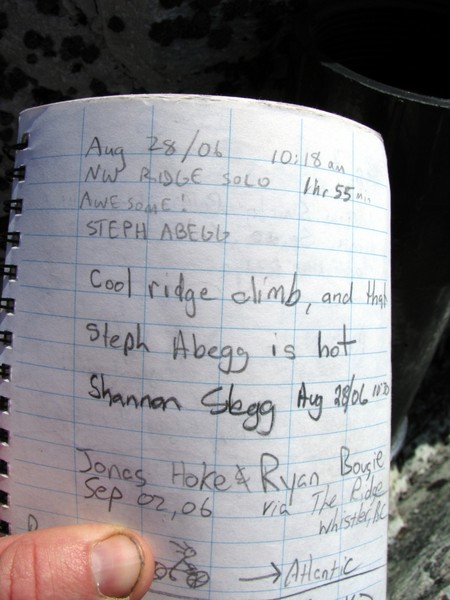 Aug 28/06 10:18 am
NW RIDGE SOLO 1hr 55 min
AWESOME!
STEPH ABEGG
Cool ridge climb, and that
Steph Abegg is hot
Shannon Aug 28/06
Jonas Hoke & Ryan Bougie
Sep 02, 06 via The Ridge
Whistler, BC
→ Atlantic